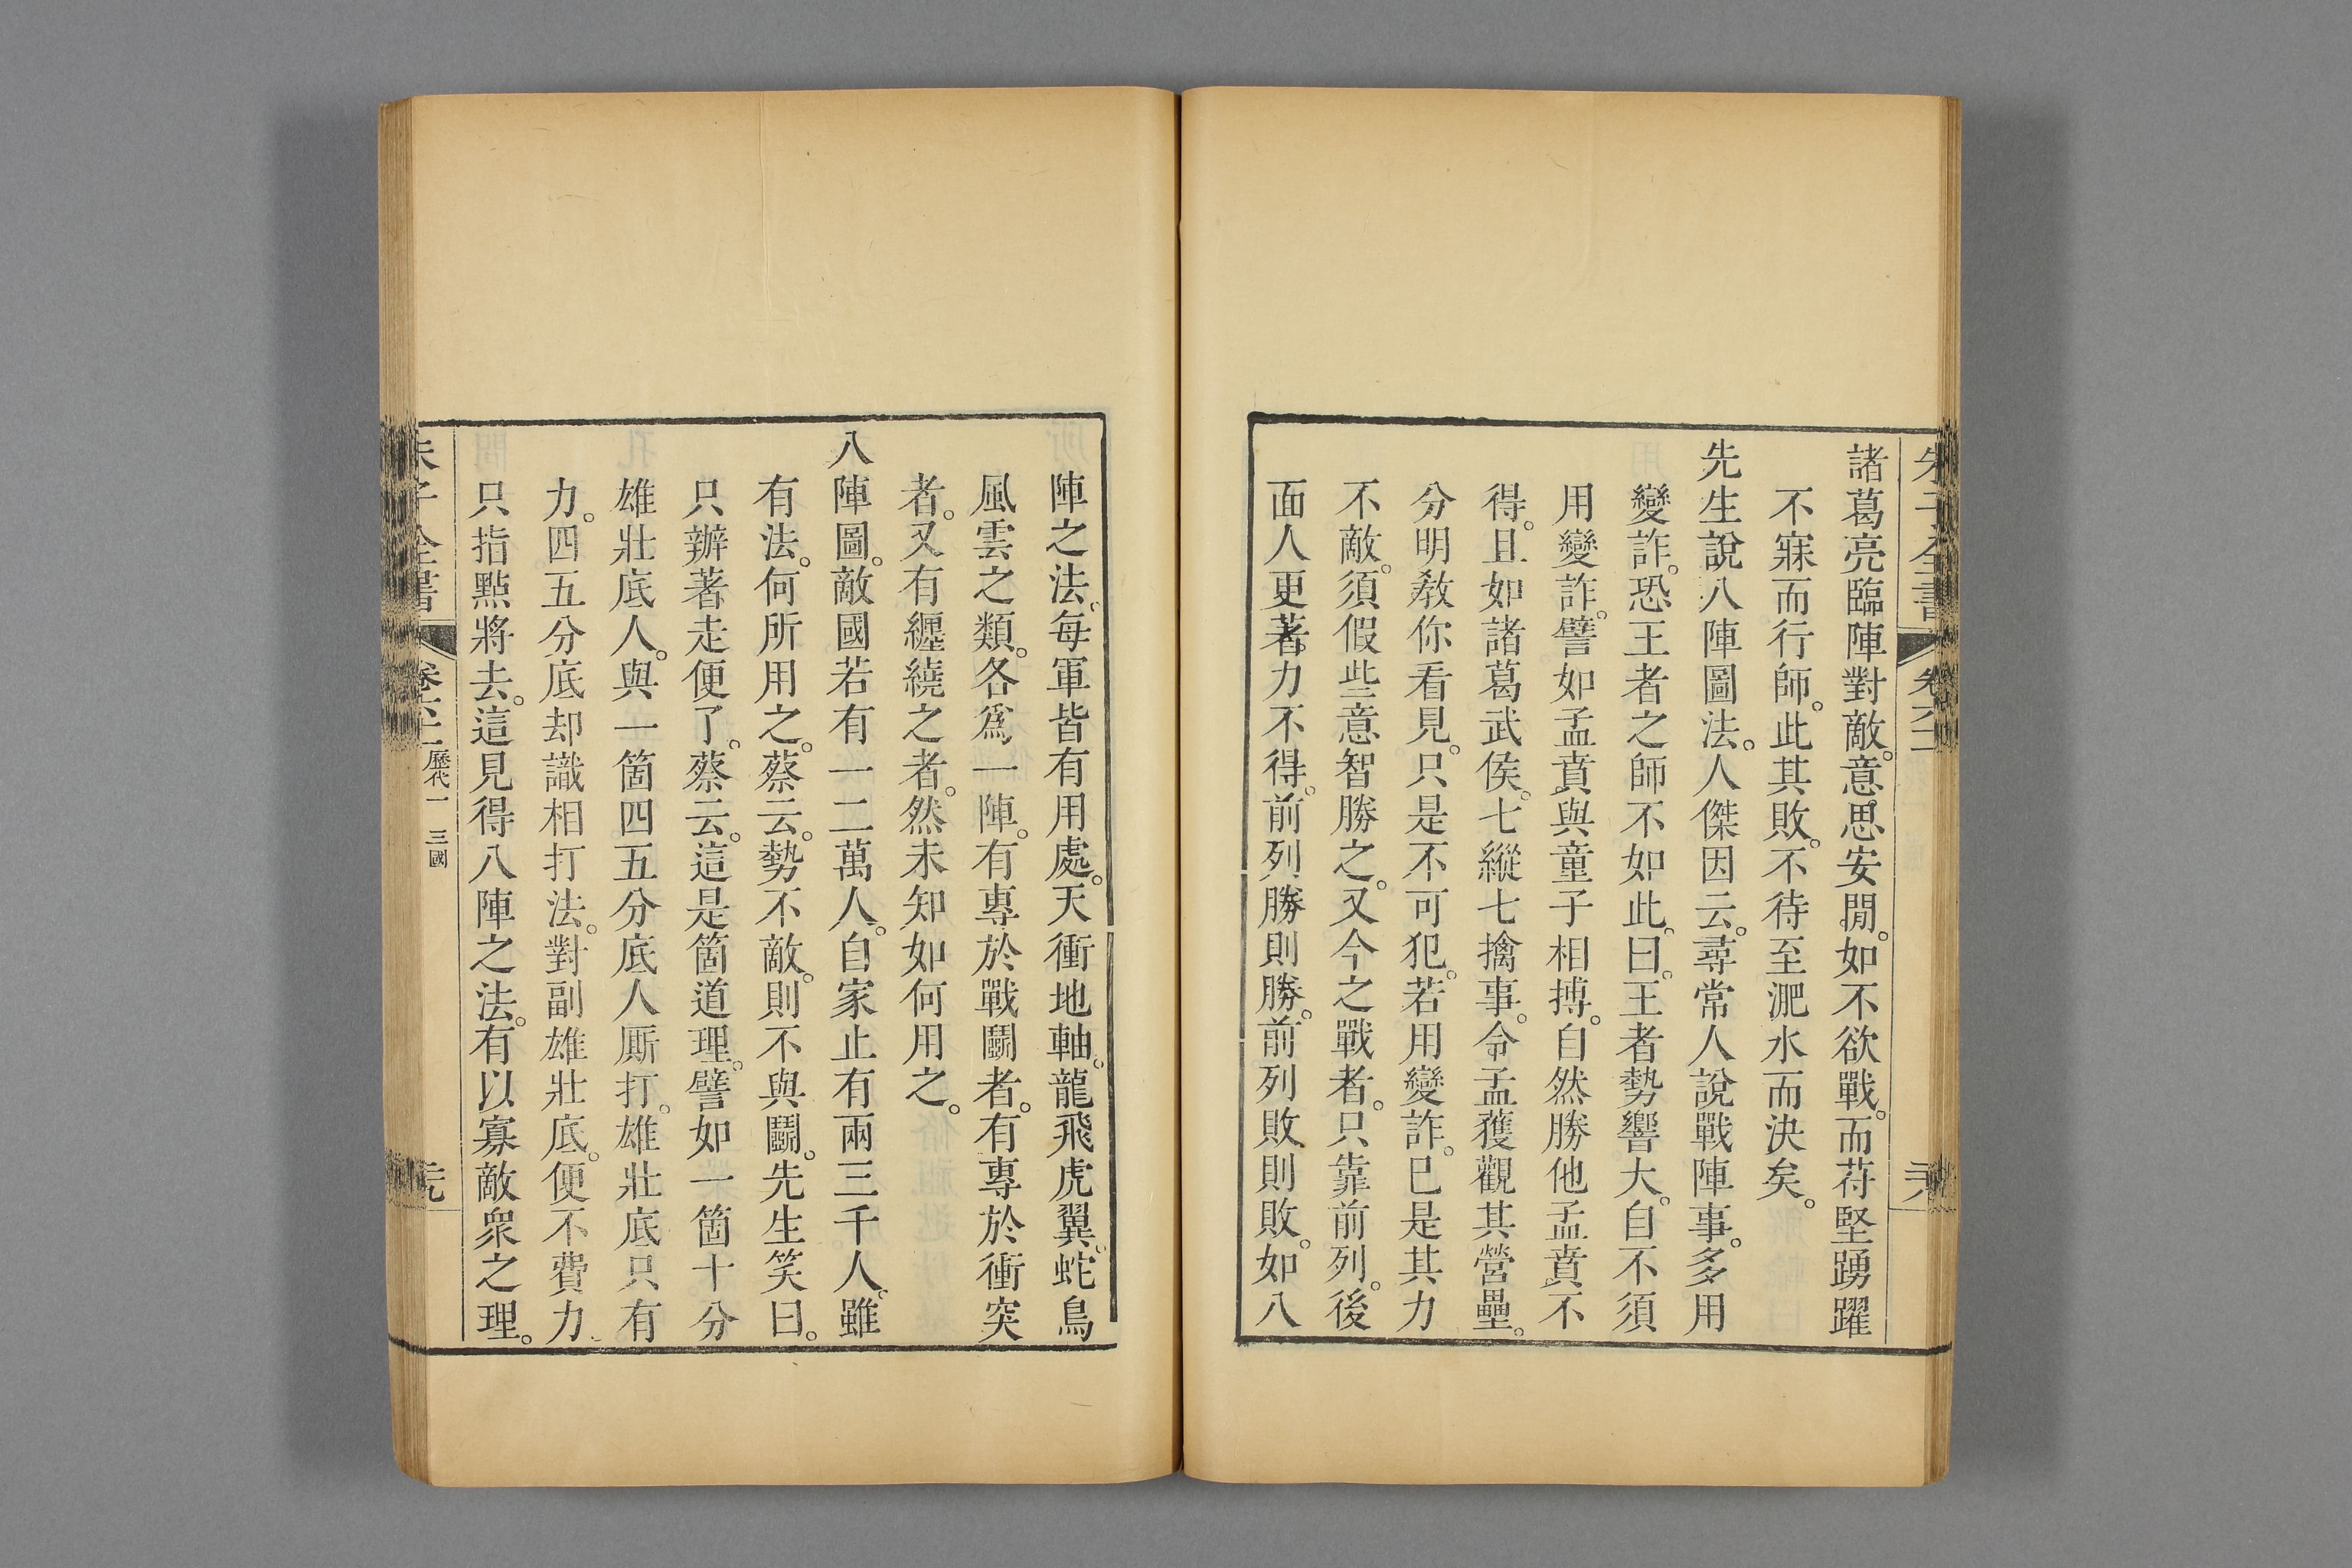 諸葛亮臨陣對敵。意思安閒。如不欲戰。而苻堅踴躍
不寐而行師。此其敗。不待至淝水而決矣。
先生說八陣圖法。人傑因云。尋常人說戰陣事。多用
變詐。恐王者之師不如此。曰。王者勢響大。自不須
用變詐。譬如孟賁與童子相搏。自然勝他孟賁不
得。且如諸葛武侯。七縱七擒事。令孟獲觀其營壘。
分明教你看見。只是不可犯。若用變詐。已是其力
不敵。須假些意智勝之。又今之戰者。只靠前列。後
面人更著力不得。前列勝則勝。前列敗則敗。如八
陣之法。每軍皆有用處。天衝地軸。龍飛虎翼。蛇鳥
風雲之類。各爲一陣。有專於戰鬬者。有專於衝突
者。又有纏繞之者。然未知如何用之。
八陣圖。敵國若有一二萬人。自家止有兩三千人。雖
有法。何所用之。蔡云。勢不敵。則不與鬬。先生笑曰。
只辦著走便了。蔡云。這是箇道理。譬如一箇十分
雄壯底人。與一箇四五分底人厮打。雄壯底只有
力。四五分底却識相打法。對副雄壯底。便不費力
只指點將去。這見得八陣之法。有以寡敵衆之理。
歷代一 三國